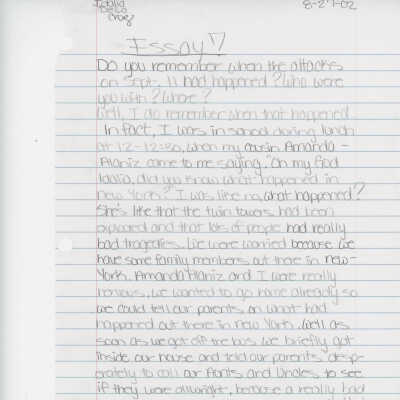 Idalia
Deleo
Cruz
8-27-02
Essay!!
Do you remember when the attacks
on Sept. 11 had happened? Who were
you with? Where?
Well, I do remember when that happened.
In fact, I was in school during lunch
at 12-12:30, when my cousin Amanda
Alaniz came to me saying, "Oh my God
Idalia, did you know what happened in
New York?" I was like no, what happened?
She's like that the twin towers had been
exploded and that lots of people had really
bad tragedies. We were worried because we
have some family members out there in New-
York. Amanda Alaniz and I were really
nervous, we wanted to go home already so
we could tell our parents on what had
happened out there in New York. Well as
soon as we got off the bus we briefly got
inside our house and told our parents desp-
erately to call our Aunts and Uncles to see
if they were allwright, because a really bad